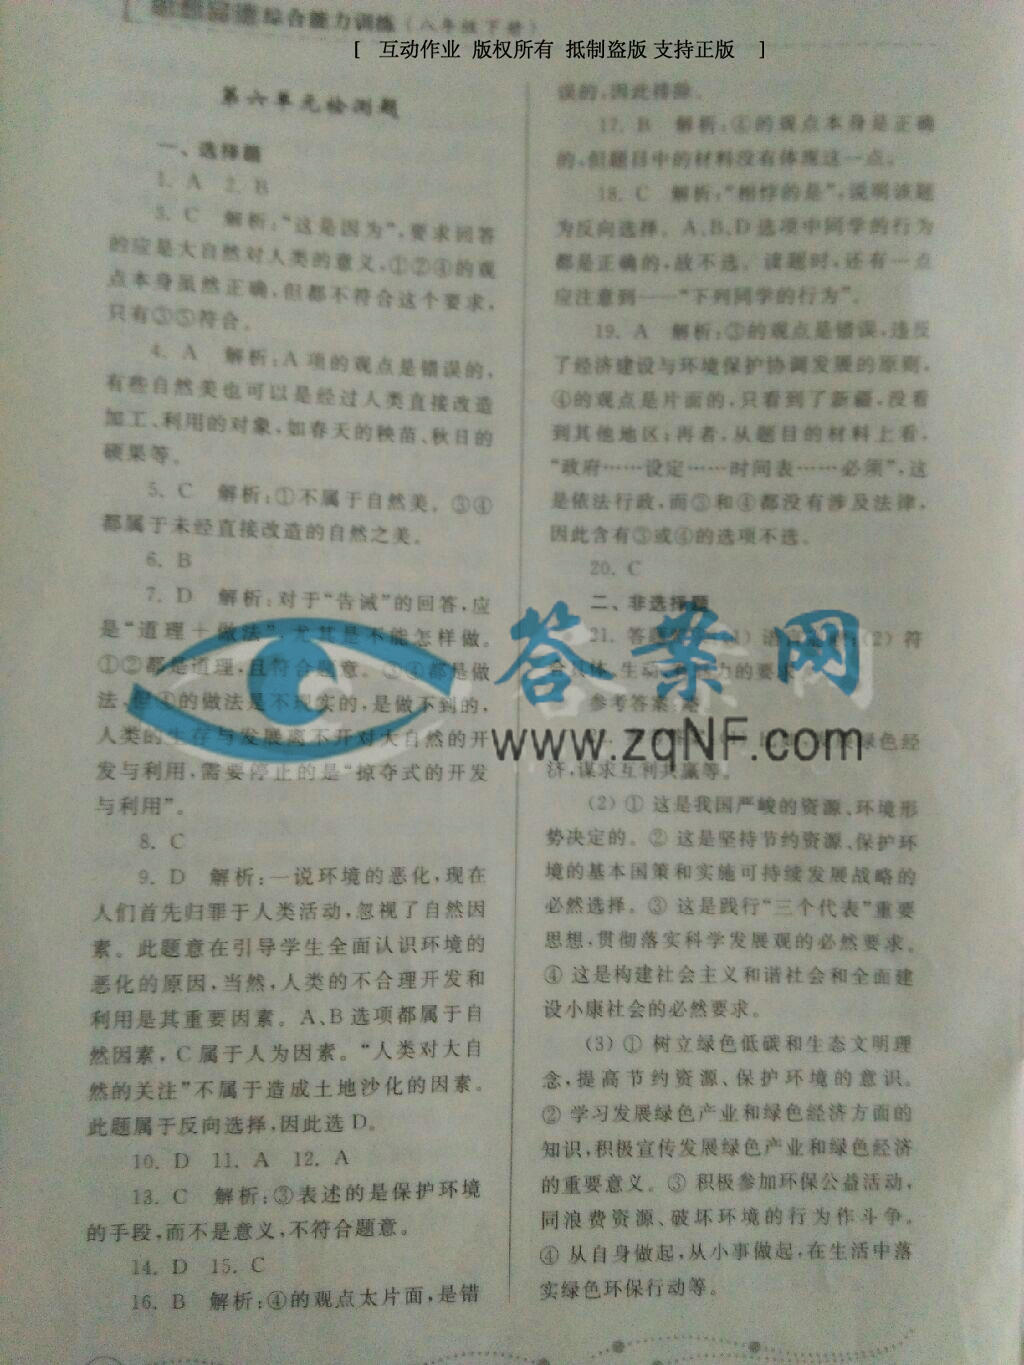 思想品德综合能力训练(八年级下册)
[ 互动作业 版权所有 抵制盗版 支持正版 ]
第六单元检测题
一、选择题
1. A 2. B
3. C 解析:“这是因为”,要求回答
的应是大自然对人类的意义,①②④的观
点本身虽然正确,但都不符合这个要求,
只有③⑤符合。
4. A 解析:A项的观点是错误的,
有些自然美也可以是经过人类直接改造
加工、利用的对象,如春天的秧苗、秋日的
硕果等。
5. C 解析:①不属于自然美。③④
都属于未经直接改造的自然之美。
6. B
7. D 解析:对于“告诫”的回答,应
是“道理+做法”,尤其是不能怎样做。
①②都是道理,且符合题意。③④都是做
法,但④的做法是不现实的,是做不到的,
人类的生存与发展离不开对大自然的开
发与利用,需要停止的是“掠夺式的开发
与利用”。
8. C
9. D 解析:一说环境的恶化,现在
人们首先归罪于人类活动,忽视了自然因
素。此题意在引导学生全面认识环境的
恶化的原因,当然,人类的不合理开发和
利用是其重要因素。A、B选项都属于自
然因素,C属于人为因素。“人类对大自
然的关注”不属于造成土地沙化的因素。
此题属于反向选择,因此选D。
10. D 11. A 12. A
13. C 解析:③表述的是保护环境
的手段,而不是意义,不符合题意。
14. D 15. C
16. B 解析:④的观点太片面,是错
误的,因此排除。
17. B 解析:④的观点本身是正确
的,但题目中的材料没有体现这一点。
18. C 解析:“相悖的是”,说明该题
为反向选择。A、B、D选项中同学的行为
都是正确的,故不选。读题时,还有一点
应注意到——“下列同学的行为”。
19. A 解析:③的观点是错误,违反
了经济建设与环境保护协调发展的原则,
④的观点是片面的,只看到了新疆,没看
到其他地区;再者,从题目的材料上看,
“政府……设定……时间表……必须”,这
是依法行政,而③和④都没有涉及法律,
因此含有③或④的选项不选。
20. C
二、非选择题
21. 答题 (1) 语言 (2) 符
合具体、生动、 力的要求
参考答案:略
绿色经
济,谋求互利共赢等。
(2) ① 这是我国严峻的资源、环境形
势决定的。② 这是坚持节约资源、保护环
境的基本国策和实施可持续发展战略的
必然选择。③ 这是践行“三个代表”重要
思想,贯彻落实科学发展观的必然要求。
④ 这是构建社会主义和谐社会和全面建
设小康社会的必然要求。
(3) ① 树立绿色低碳和生态文明理
念,提高节约资源、保护环境的意识。
② 学习发展绿色产业和绿色经济方面的
知识,积极宣传发展绿色产业和绿色经济
的重要意义。③ 积极参加环保公益活动,
同浪费资源、破坏环境的行为作斗争。
④ 从自身做起,从小事做起,在生活中落
实绿色环保行动等。
答案网
www.zqNF.com